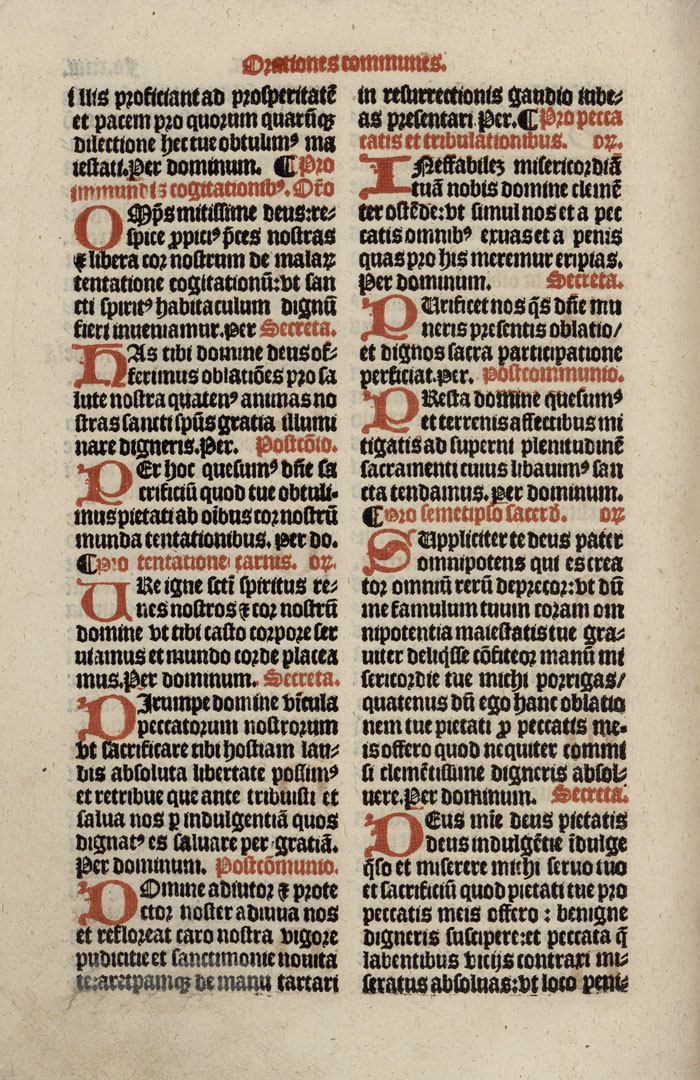 Orationes communes.
illis proficiant ad prosperitatē
et pacem pro quorum quarūqꝫ
dilectione hec tue obtulimꝰ ma
iestati. Per dominum. ¶ Pro
immundis cogitationibꝰ. Orō
OMp̄s mitissime deus: re-
spice ꝓpiciꝰ p̄ces nostras
⁊ libera cor nostrum de malaꝝ
tentatione cogitationū: vt san
cti spiritꝰ habitaculum dignū
fieri inueniamur. Per Secreta.
HAs tibi domine deus of-
ferimus oblatiōes pro sa
lute nostra quatenꝰ animas no
stras sancti sp̄us gratia illumi
nare digneris. Per. Postcōio.
PEr hoc quesumꝰ dn̄e sa
crificiū quod tue obtuli-
mus pietati ab oībus cor nostrū
munda tentationibus. per do.
¶ Pro tentatione carnis. oꝝ.
URe igne scti spiritus re-
nes nostros ⁊ cor nostrū
domine vt tibi casto corpore ser
uiamus et mundo corde placea
mus. Per dominum. Secreta.
DIrumpe domine vīcula
peccatorum nostrorum
vt sacrificare tibi hostiam lau-
dis absoluta libertate possimꝰ
et retribue que ante tribuisti et
salua nos ꝑ indulgentiā quos
dignatꝰ es saluare per gratiā.
Per dominum. Postcōmunio.
DOmine adiutor ⁊ prote
ctor noster adiuua nos
et refloreat caro nostra vigore
pudicitie et sanctimonie nouita
te: areptamqꝫ de manu tartari
in resurrectionis gaudio iube-
as presentari. Per. ¶ Pro pecca
catis et tribulationibus. oꝝ.
INeffabilez misericordiā
tuā nobis domine clemē
ter ostēde: vt simul nos et a pec
catis omnibꝰ exuas et a penis
quas pro his meremur eripias.
Per dominum. Secreta.
PUrificet nos q̄s dn̄e mu
neris presentis oblatio/
et dignos sacra participatione
perficiat. Per. Postcommunio.
PResta domine quesumꝰ
et terrenis affectibus mi
tigatis ad superni plenitudinē
sacramenti cuius libauimꝰ san
cta tendamus. Per dominum.
¶ Pro semetipso sacerd. oꝝ
SUppliciter te deus pater
omnipotens qui es crea
tor omniū rerū deprecor: vt dū
me famulum tuum coram om
nipotentia maiestatis tue gra-
uiter deliq̄sse cōfiteor manū mi
sericordie tue michi porrigas/
quatenus dū ego hanc oblatio
nem tue pietati ꝓ peccatis me-
is offero quod nequiter commi
si clemētissime digneris absol-
uere. Per dominum. Secreta.
DEus mīe deus pietatis
deus indulgētie īdulge
q̄so et miserere michi seruo tuo
et sacrificiū quod pietati tue pro
peccatis meis offero: benigne
digneris suscipere: et peccata q̄
labentibus vicijs contraxi mi-
seratus absoluas: vt loco peni-